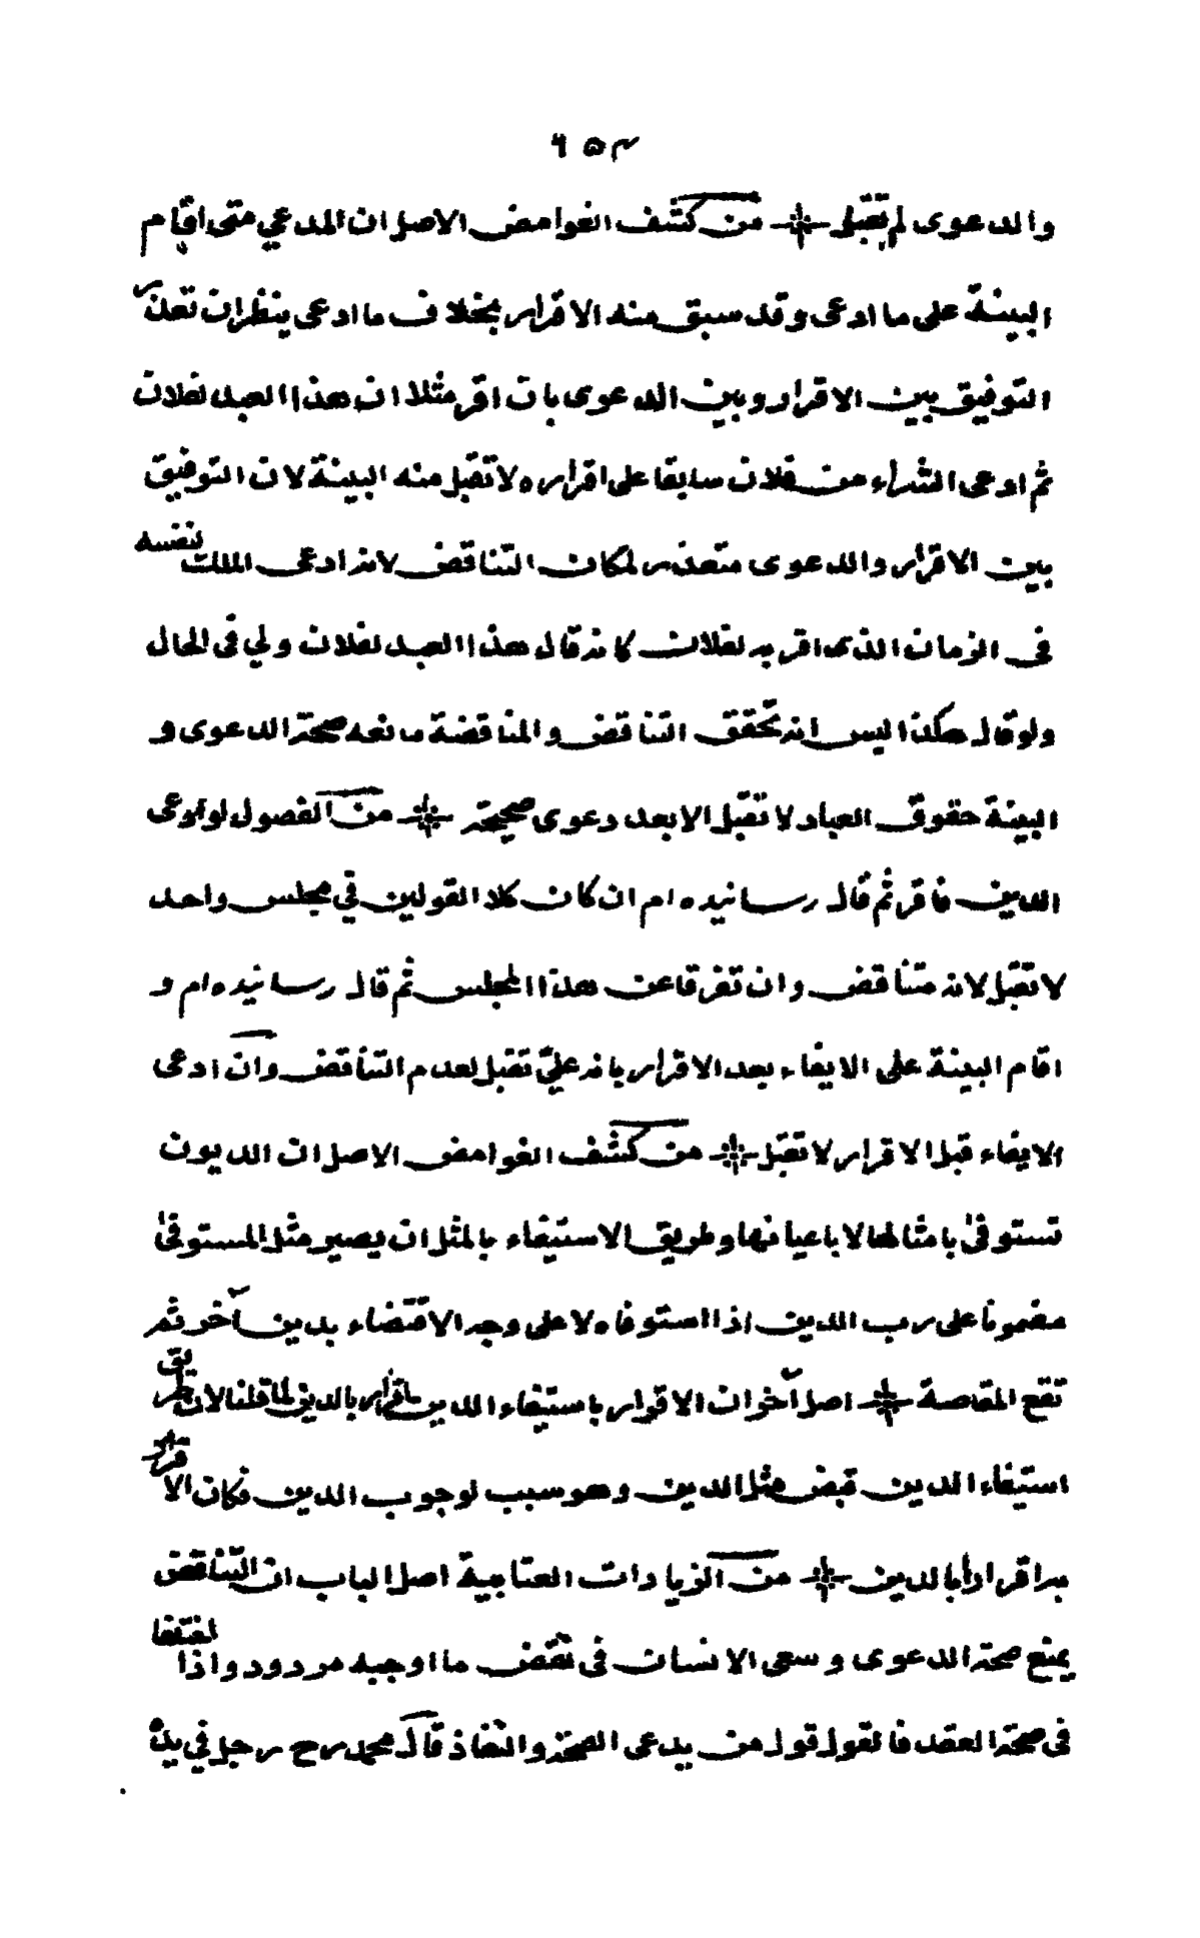 ٦٥٣
والدعوى لم تقبل من كشف الغوامض الاصل ان المدعي متى اقام
البينة على ما ادعى وقد سبق منه الاقرار بخلاف ما ادعى ينظر ان تعذر
التوفيق بين الاقرار وبين الدعوى بان اقر مثلا ان هذا العبد لفلان
ثم ادعى الشراء من فلان سابقا على اقراره لا تقبل منه البينة لان التوفيق
بين الاقرار والدعوى متعذر لمكان التناقض لانه ادعى الملك لنفسه
في الزمان الذى اقر به لفلان كانه قال هذا العبد لفلان ولي في الحال
ولو قال هكذا اليس انه تحقق التناقض والمناقضة مانعه صحة الدعوى و
البينة حقوق العباد لا تقبل الا بعد دعوى صحيحة من الفصول لو ادعى
الدين فاقر ثم قال رسانيده ام ان كان كلا القولين في مجلس واحد
لا تقبل لانه متناقض وان تفرقا عن هذا المجلس ثم قال رسانيده ام و
اقام البينة على الايفاء بعد الاقرار بانه عليّ تقبل لعدم التناقض وان ادعى
الايفاء قبل الاقرار لا تقبل من كشف الغوامض الاصل ان الديون
تستوفى بامثالها لا باعيانها وطريق الاستيفاء بالمثل ان يصير مثل المستوفى
مضمونا على رب الدين اذا استوفاه لا على وجه الاقتضاء بدين آخر ثم
تقع المقاصة اصل آخر ان الاقرار باستيفاء الدين اقرار بالدين لما قلنا لان طريق
استيفاء الدين قبض مثل الدين وهو سبب لوجوب الدين فكان الاقرار
به اقرارا بالدين من الزيادات العتابية اصل الباب ان التناقض
يمنع صحة الدعوى وسعى الانسان في نقض ما اوجبه مردود واذا اختلفا
في صحة العقد فالقول قول من يدعى الصحة والنفاذ قال محمد رح رجل في يده